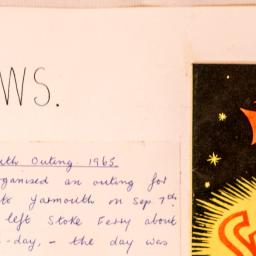 WS.
uth Outing. 1965
rganised an outing for
to Yarmouth on Sep. 7th
left Stoke Ferry about
-day, - the day was